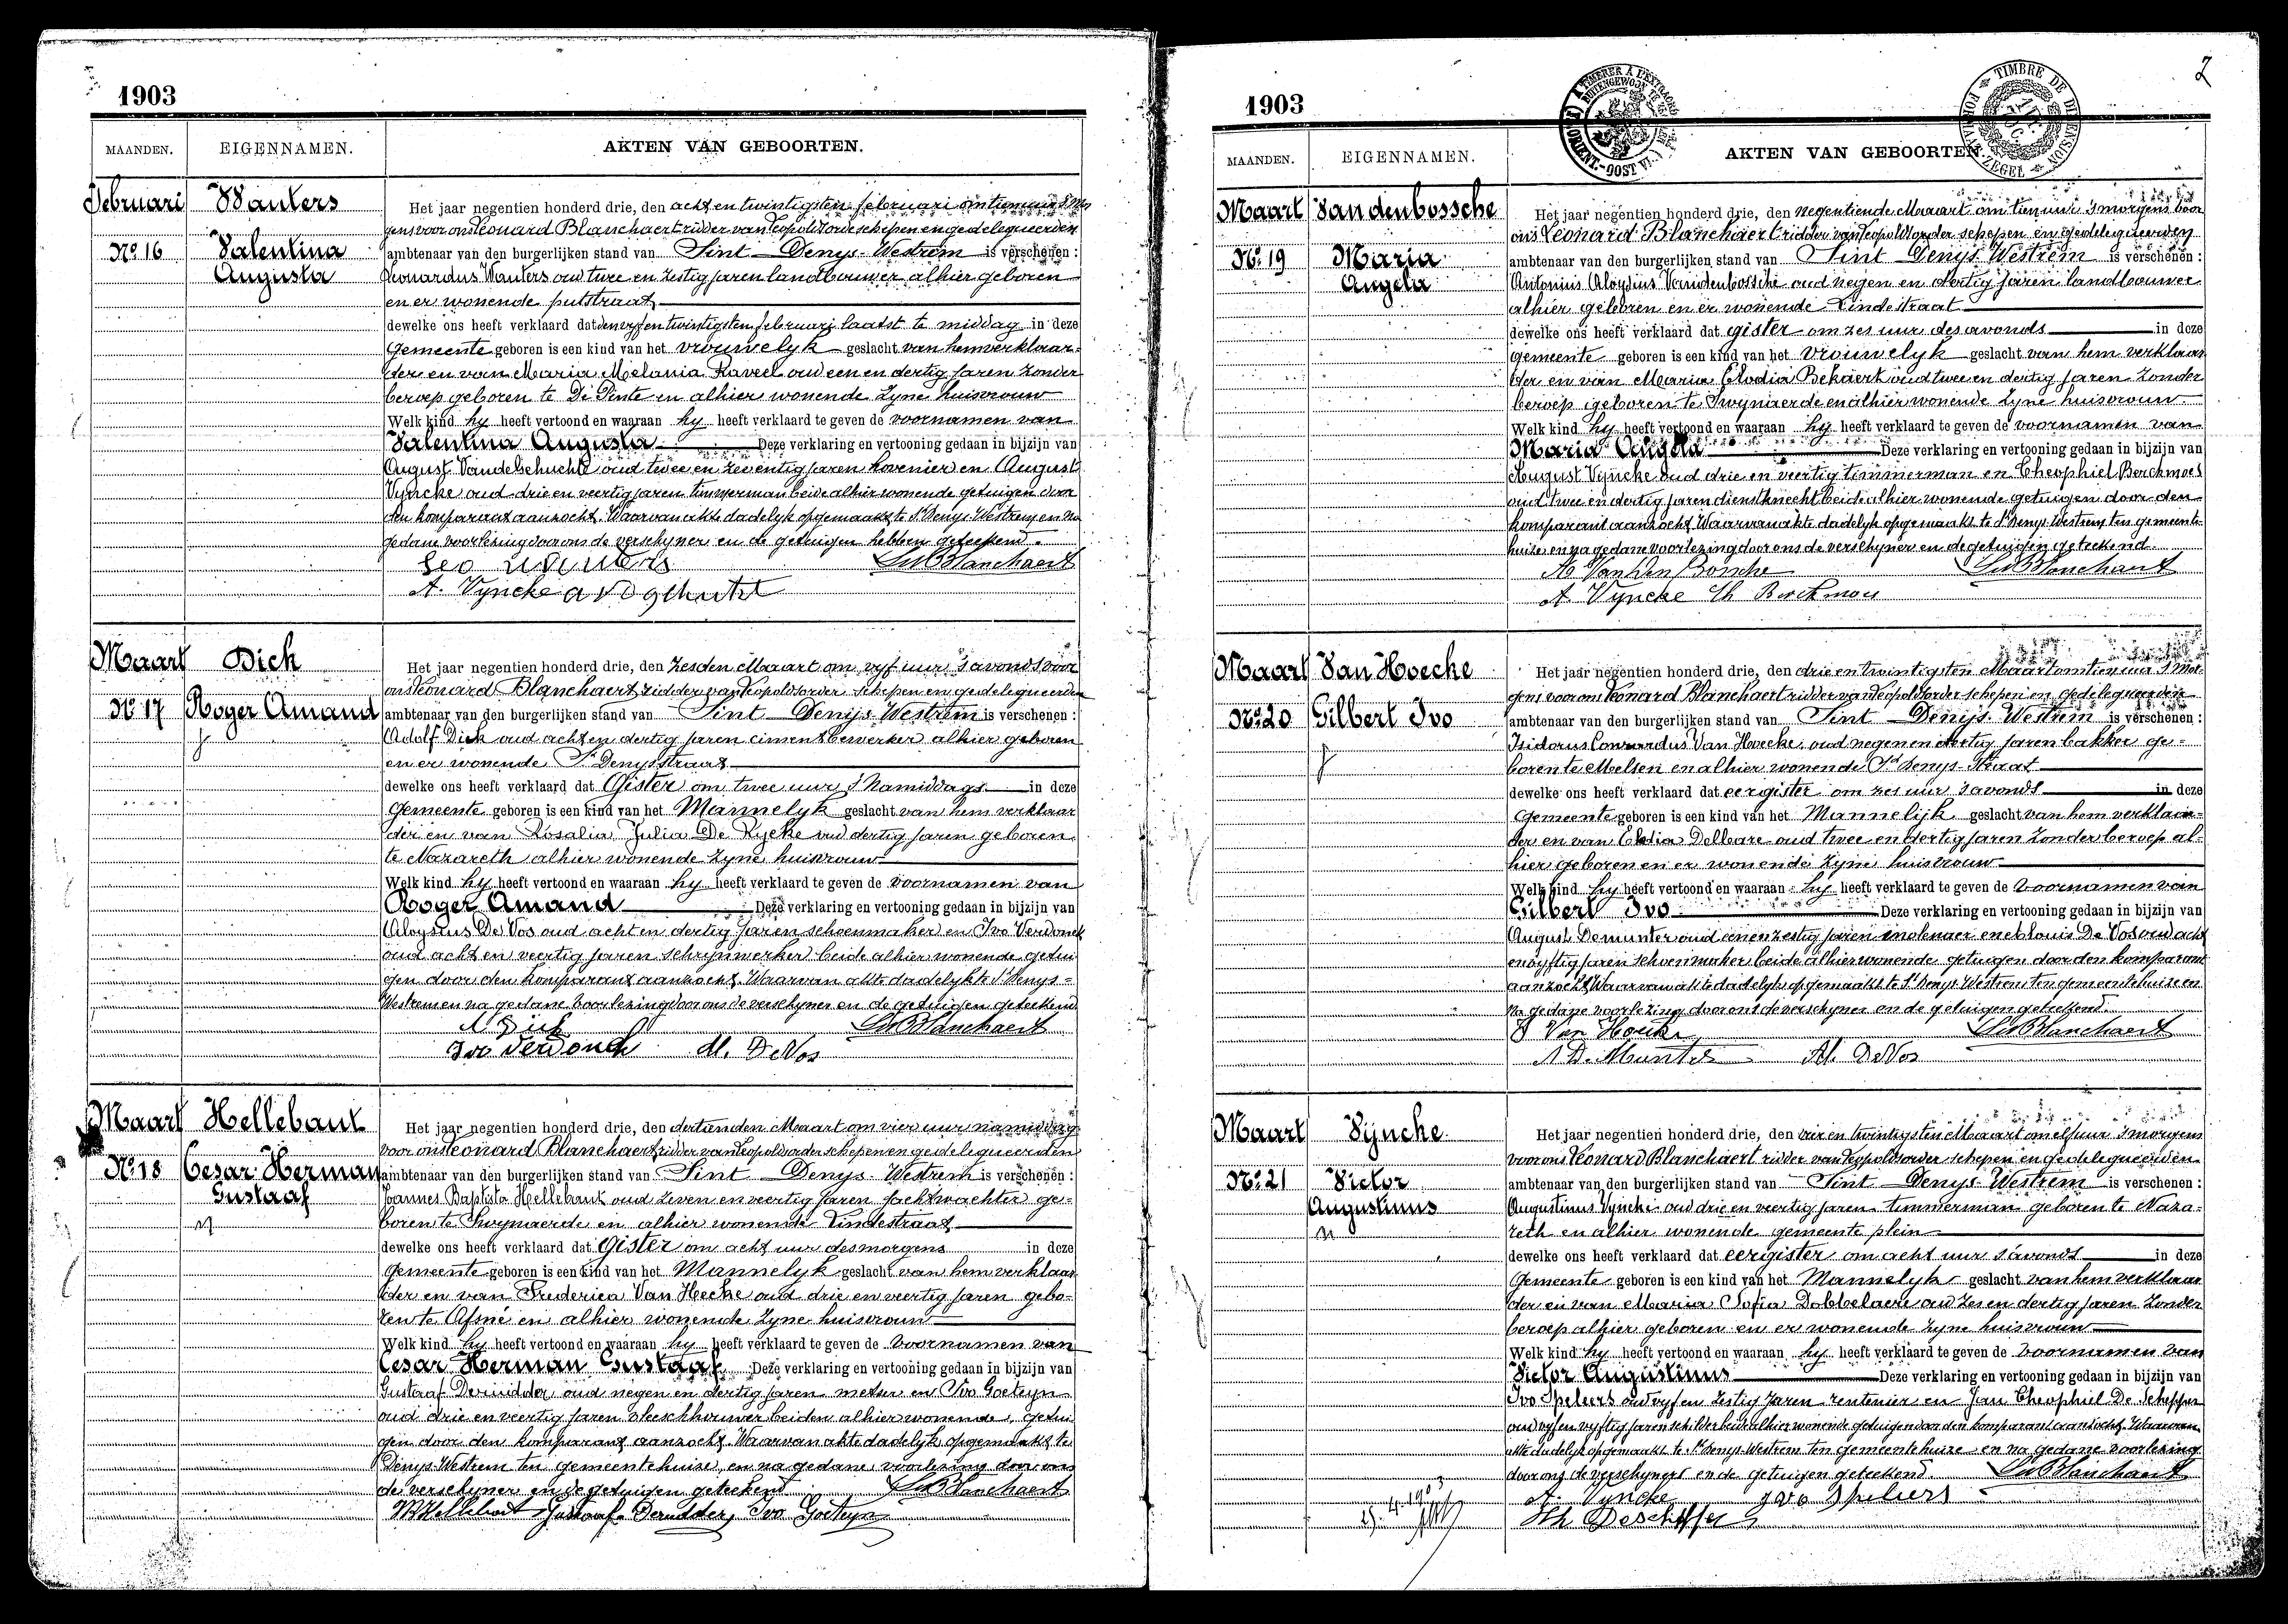 1903
MAANDEN. EIGENNAMEN. AKTEN VAN GEBOORTEN.
Februari Wauters
Het jaar negentien honderd drie, den acht en twintigsten februari om tien uur s'mor
gens voor ons Leonard Blanchaert ridder van Leopoldsorde schepen en gedelegueerden
Nº 16 Valentina ambtenaar van den burgerlijken stand van Sint Denys-Westrem is verschenen :
Augusta Leonardus Wauters oud twee en zestig jaren landbouwer alhier geboren
en er wonende putstraat
dewelke ons heeft verklaard dat den vyf en twintigsten februari laatst te middag in deze
Gemeente geboren is een kind van het vrouwelyk geslacht van hem verklaar-
der en van Maria Melania Raveel oud een en dertig jaren zonder
beroep geboren te De Pinte en alhier wonende zyne huisvrouw
Welk kind hy heeft vertoond en waaraan hy heeft verklaard te geven de voornamen van
Valentina Augusta Deze verklaring en vertooning gedaan in bijzijn van
August Vandegehuchte oud twee en zeventig jaren hovenier en August
Vyncke oud drie en veertig jaren timmerman beide alhier wonende getuigen door
den komparant aanzocht. Waarvan akte dadelyk opgemaakt te St Denys Westrem en na
gedane voorlezing door ons de verschyner en de getuigen hebben geteekend.
Leo Wauters LdBlanchaert
A. Vyncke
Maart Dick
Het jaar negentien honderd drie, den zesden Maart om vyf uur s'avonds voor
ons Leonard Blanchaert ridder van Leopoldsorder schepen en gedelegueerden
Nº 17 Roger Amand ambtenaar van den burgerlijken stand van Sint Denijs-Westrem is verschenen :
Adolf Dick oud acht en dertig jaren cimentbewerker alhier geboren
en er wonende St Denysstraat
dewelke ons heeft verklaard dat Gister om twee uur s'Namiddags in deze
Gemeente geboren is een kind van het Mannelyk geslacht van hem verklaar
der en van Rosalia Julia De Rycke oud dertig jaren geboren
te Nazareth alhier wonende zyne huisvrouw
Welk kind hy heeft vertoond en waaraan hy heeft verklaard te geven de voornamen van
Roger Amand Deze verklaring en vertooning gedaan in bijzijn van
Aloysius De Vos oud acht en dertig jaren schoenmaker en Ivo Verdonck
oud acht en veertig jaren schrynwerker beide alhier wonende getui
gen door den komparant aanzocht. Waarvan akte dadelyk te St Denys-
Westrem en na gedane voorlezing door ons de verschyner en de getuigen geteekend
A Dick LdBlanchaert
Ivo Verdonck Al. DeVos
Maart Hellebaut
Het jaar negentien honderd drie, den dertienden Maart om vier uur namiddag
voor ons Leonard Blanchaert ridder van Leopoldsorder schepen en gedelegueerden
Nº 18 Cesar Herman ambtenaar van den burgerlijken stand van Sint Denys-Westrem is verschenen :
Gustaaf Joannes Baptista Hellebaut oud zeven en veertig jaren sachtwachter ge-
boren te Swynaerde en alhier wonende Lindestraat
dewelke ons heeft verklaard dat Gister om acht uur des morgens in deze
Gemeente geboren is een kind van het Mannelyk geslacht van hem verklaar
der en van Frederica Van Hecke oud drie en veertig jaren gebo-
ren te Afsné en alhier wonende zyne huisvrouw
Welk kind hy heeft vertoond en waaraan hy heeft verklaard te geven de voornamen van
Cesar Herman Gustaaf Deze verklaring en vertooning gedaan in bijzijn van
Gustaaf Derudder oud negen en dertig jaren metser en Ivo Goeteyn
oud drie en veertig jaren vleeschhouwer beiden alhier wonende getui
gen door den komparant aanzocht. Waarvan akte dadelyk opgemaakt te
Denys-Westrem ten gemeentehuize, en na gedane voorlezing door ons
de verschyner en de getuigen geteekend LdBlanchaert
Gustaaf Derudder, Ivo Goeteyn
2
1903
TIMBRE DE DIMENSION
MAANDEN. EIGENNAMEN. AKTEN VAN GEBOORTEN.
Maart Vandenbossche
Het jaar negentien honderd drie, den negentiende Maart om tien uur s'morgens voor
ons Leonard Blanchaert ridder van Leopoldsorder schepen en gedelegueerden
Nº 19 Maria ambtenaar van den burgerlijken stand van Sint Denys-Westrem is verschenen :
Angela Antonius Aloysius Vandenbossche oud negen en dertig jaren landbouwer
alhier geboren en er wonende Lindestraat
dewelke ons heeft verklaard dat gister om zes uur des avonds in deze
gemeente geboren is een kind van het Vrouwelyk geslacht van hem verklaar
der en van Maria Elodia Bekaert oud twee en dertig jaren zonder
beroep geboren te Swynaerde en alhier wonende zyne huisvrouw
Welk kind hy heeft vertoond en waaraan hy heeft verklaard te geven de voornamen van
Maria Angela Deze verklaring en vertooning gedaan in bijzijn van
August Vyncke oud drie en veertig timmerman en Theophiel Berckmoes
oud twee en dertig jaren dienstknecht beide alhier wonende getuigen door den
komparant aanzocht. Waarvan akte dadelyk opgemaakt te St Denys Westrem ten gemeente
huize en na gedane voorlezing door ons de verschyner en de getuigen geteekend.
A Vanden Bossche LdBlanchaert
A. Vyncke Th Berckmoes
Maart Van Hoecke
Het jaar negentien honderd drie, den drie en twintigsten Maart om tien uur s'mor
gens voor ons Leonard Blanchaert ridder van Leopoldsorder schepen en gedelegueerden
Nº 20 Gilbert Ivo ambtenaar van den burgerlijken stand van Sint Denys-Westrem is verschenen :
Isidorus Conrardus Van Hoecke, oud negen en dertig jaren bakker ge-
boren te Melsen en alhier wonende St Denys-Straat
dewelke ons heeft verklaard dat eergister om zes uur s'avonds in deze
Gemeente geboren is een kind van het Mannelijk geslacht van hem verklaar-
der en van Elodia Delbare oud twee en dertig jaren zonder beroep al-
hier geboren en er wonende zyne huisvrouw
Welk kind hy heeft vertoond en waaraan hy heeft verklaard te geven de voornamen van
Gilbert Ivo Deze verklaring en vertooning gedaan in bijzijn van
August Demunter oud een en zestig jaren molenaer en Alouis De Vos oud acht
en vyftig jaren schoenmaker beide alhier wonende getuigen door den komparant
aanzocht. Waarvan akte dadelyk opgemaakt te St Denys Westrem ten gemeentehuize en
na gedane voorlezing door ons de verschyner en de getuigen geteekend.
Van Hoecke LdBlanchaert
A D. Munter Al. DeVos
Maart Vyncke.
Het jaar negentien honderd drie, den vier en twintigsten Maart om elf uur s'morgens
voor ons Leonard Blanchaert ridder van Leopoldsorder schepen en gedelegueerden
Nº 21 Victor ambtenaar van den burgerlijken stand van Sint Denys-Westrem is verschenen :
Augustinus Augustinus Vyncke oud drie en veertig jaren timmerman geboren te Naza-
reth en alhier wonende gemeente plein
dewelke ons heeft verklaard dat eergister om acht uur s'avonds in deze
Gemeente geboren is een kind van het Mannelyk geslacht van hem verklaar
der en van Maria Sofia Dobbelaere oud zes en dertig jaren zonder
beroep alhier geboren en er wonende zyne huisvrouw
Welk kind hy heeft vertoond en waaraan hy heeft verklaard te geven de voornamen van
Victor Augustinus Deze verklaring en vertooning gedaan in bijzijn van
Ivo Speleers oud vyf en zestig jaren rentenier en Jan Theophiel De Schepper
oud vyf en vyftig jaren schilder beide alhier wonende getuigen door den komparant aanzocht. Waarvan
akte dadelyk opgemaakt te St Denys Westrem ten gemeentehuize en na gedane voorlezing
door ons de verschyners en de getuigen geteekend. LdBlanchaert
A. Vyncke Ivo Speliers
4.1903 Th Deschepper